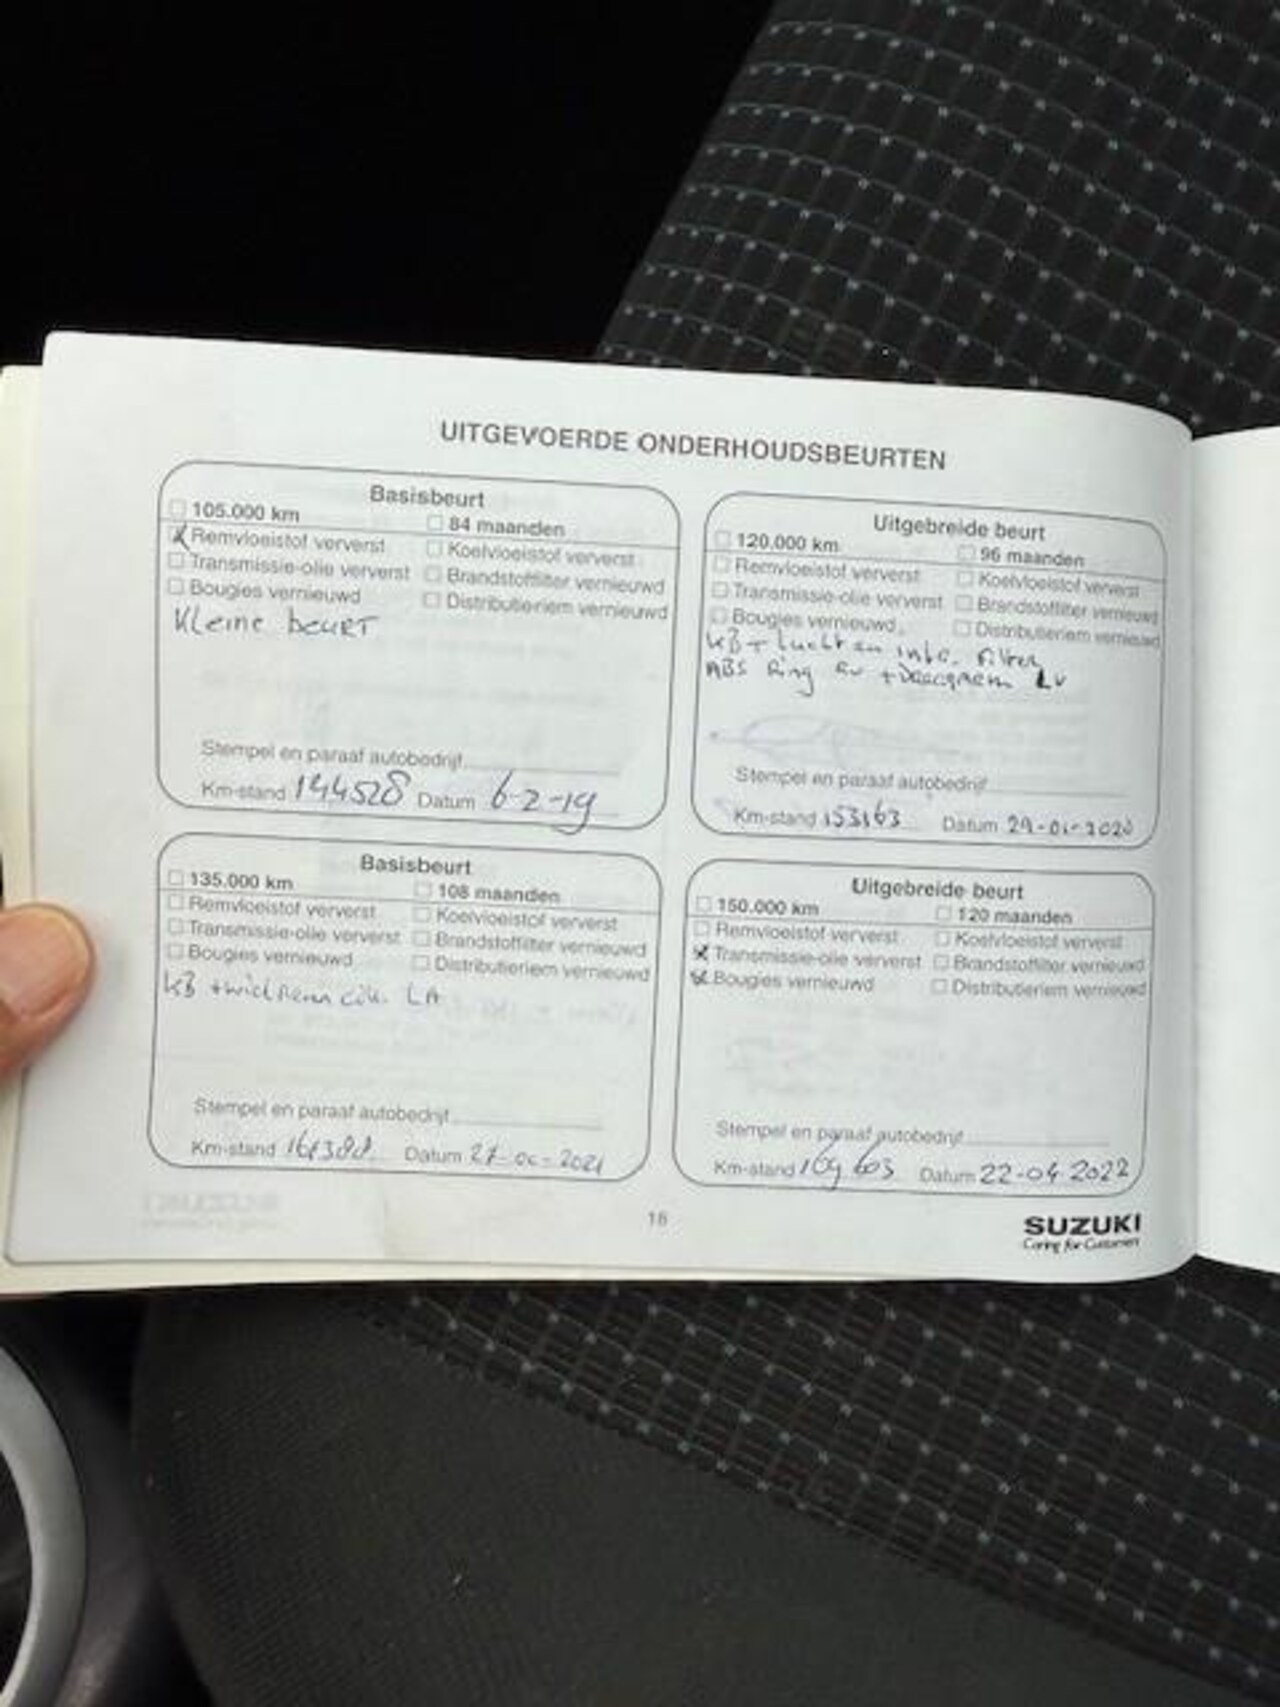 UITGEVOERDE ONDERHOUDSBEURTEN
Basisbeurt
105.000 km 84 maanden
Remvloeistof ververst Koelvloeistof ververst
Transmissie-olie ververst Brandstoffilter vernieuwd
Bougies vernieuwd Distributieriem vernieuwd
Kleine beurt
Stempel en paraaf autobedrijf
Km-stand 144528 Datum 6-2-19
Uitgebreide beurt
120.000 km 96 maanden
Remvloeistof ververst Koelvloeistof ververst
Transmissie-olie ververst Brandstoffilter vernieuwd
Bougies vernieuwd Distributieriem vernieuwd
KB + lucht en filter
ABS Ring + LV
Stempel en paraaf autobedrijf
Km-stand 153163 Datum 29-01-2020
Basisbeurt
135.000 km 108 maanden
Remvloeistof ververst Koelvloeistof ververst
Transmissie-olie ververst Brandstoffilter vernieuwd
Bougies vernieuwd Distributieriem vernieuwd
KB + wielrem cil. LA
Stempel en paraaf autobedrijf
Km-stand Datum
Uitgebreide beurt
150.000 km 120 maanden
Remvloeistof ververst Koelvloeistof ververst
Transmissie-olie ververst Brandstoffilter vernieuwd
Bougies vernieuwd Distributieriem vernieuwd
Stempel en paraaf autobedrijf
Km-stand 169603 Datum 22-04 2022
16
SUZUKI
Caring for Customers